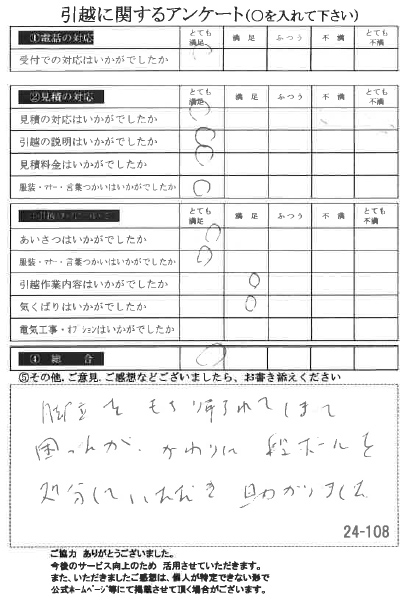 引越に関するアンケート(○を入れて下さい)
①電話の対応 とても満足 満足 ふつう 不満 とても不満
受付での対応はいかがでしたか
②見積の対応 とても満足 満足 ふつう 不満 とても不満
見積の対応はいかがでしたか
引越の説明はいかがでしたか
見積料金はいかがでしたか
服装・マナー・言葉つかいはいかがでしたか
とても満足 満足 ふつう 不満 とても不満
あいさつはいかがでしたか
服装・マナー・言葉つかいはいかがでしたか
引越作業内容はいかがでしたか
気くばりはいかがでしたか
電気工事・オプションはいかがでしたか
④ 総 合
⑤その他.ご意見.ご感想などございましたら、お書き添えください
脚立をもち帰られてしまて
困ったが、かわりに 段ボールを
処分していただき 助かりました
24-108
ご協力 ありがとうございました。
今後のサービス向上のため 活用させていただきます。
また、いただきましたご感想は、個人が特定できない形で
公式ホームページ等にて掲載させて頂く場合がございます。